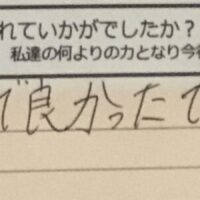 れていかがでしたか？
私達の何よりの力となり今後
で良かったで